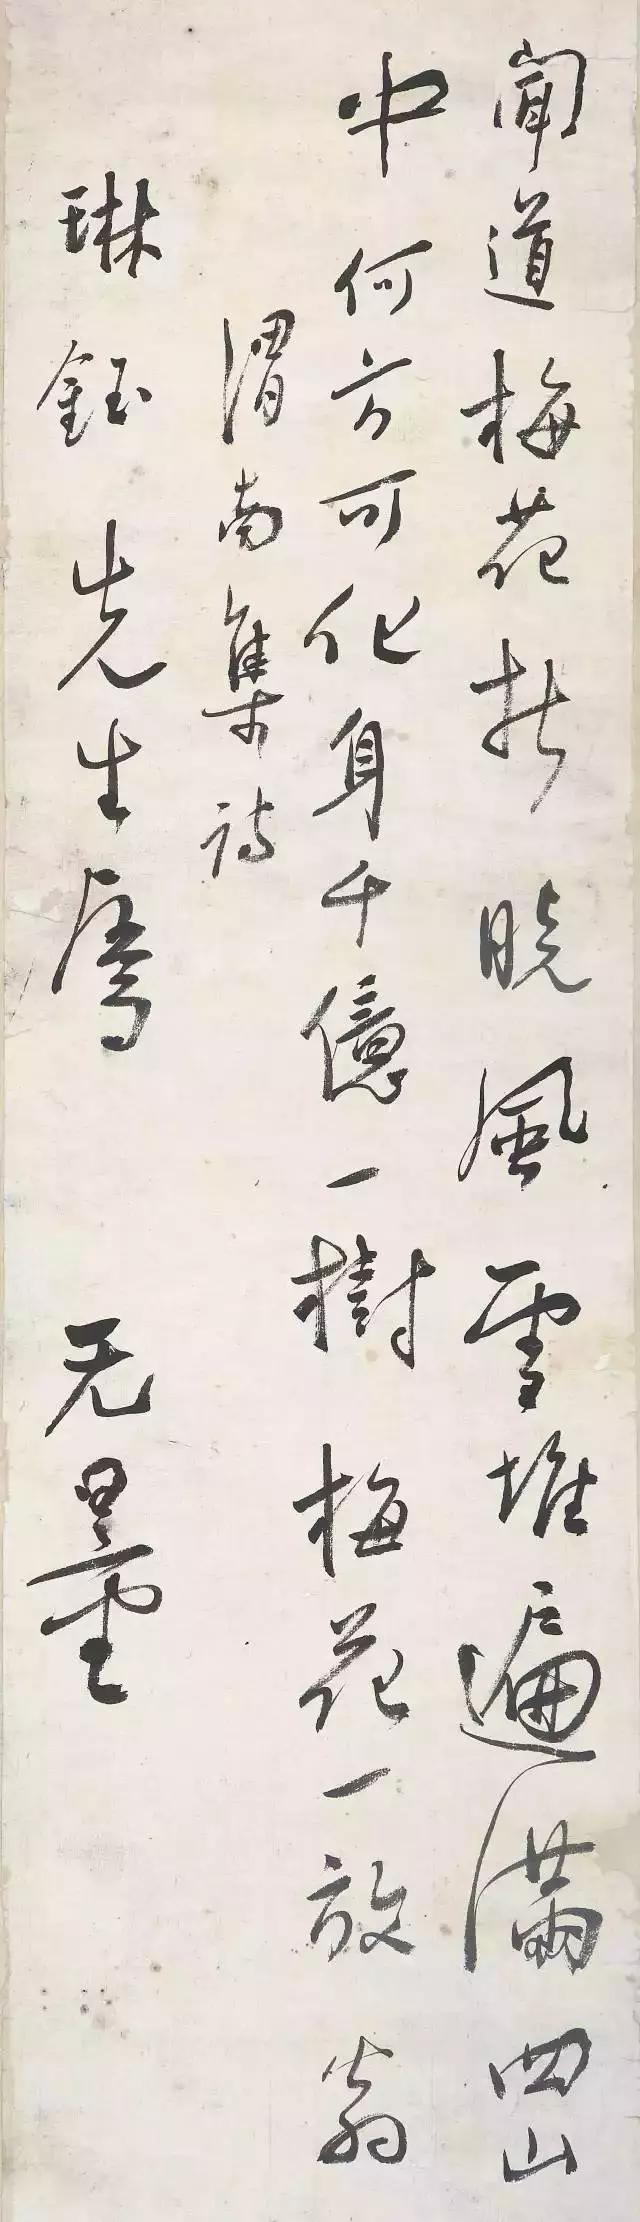 聞道梅花拆曉風雪堆遍滿四山
中何方可化身千億一樹梅花一放翁
渭南集詩
琳鈺先生屬 无量